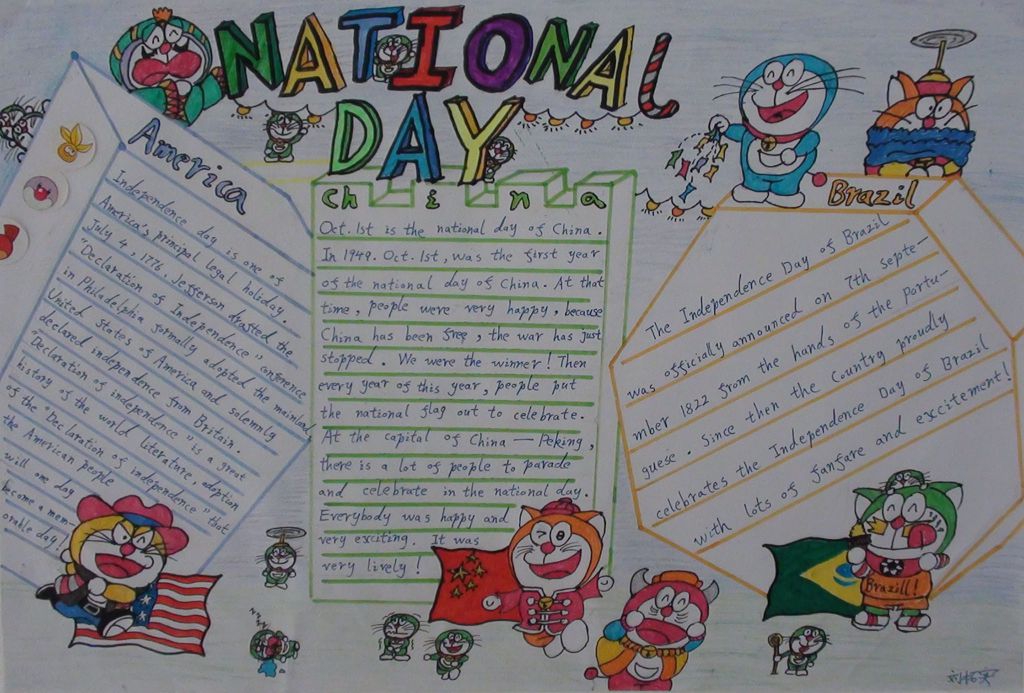 NATIONAL
DAY
America
Independence day is one of
America's principal legal holiday.
July 4, 1776, Jefferson drafted the
"Declaration of Independence" conference
in Philadelphia formally adopted the mainland
United states of America and solemnly
declared independence from Britain.
"Declaration of independence" is a great
history of the world literature, adoption
of the "Declaration of independence" that
the American people
will one day
become a mem-
orable day!
China
Oct. 1st is the national day of China.
In 1949. Oct. 1st, was the first year
of the national day of China. At that
time, people were very happy, because
China has been free, the war has just
stopped. We were the winner! Then
every year of this year, people put
the national flag out to celebrate.
At the capital of China — Peking,
there is a lot of people to parade
and celebrate in the national day.
Everybody was happy and
very exciting. It was
very lively!
Brazil
The Independence Day of Brazil
was officially announced on 7th septe-
mber 1822 from the hands of the Portu-
guese. Since then the Country proudly
celebrates the Independence Day of Brazil
with lots of fanfare and excitement!
Brazill!